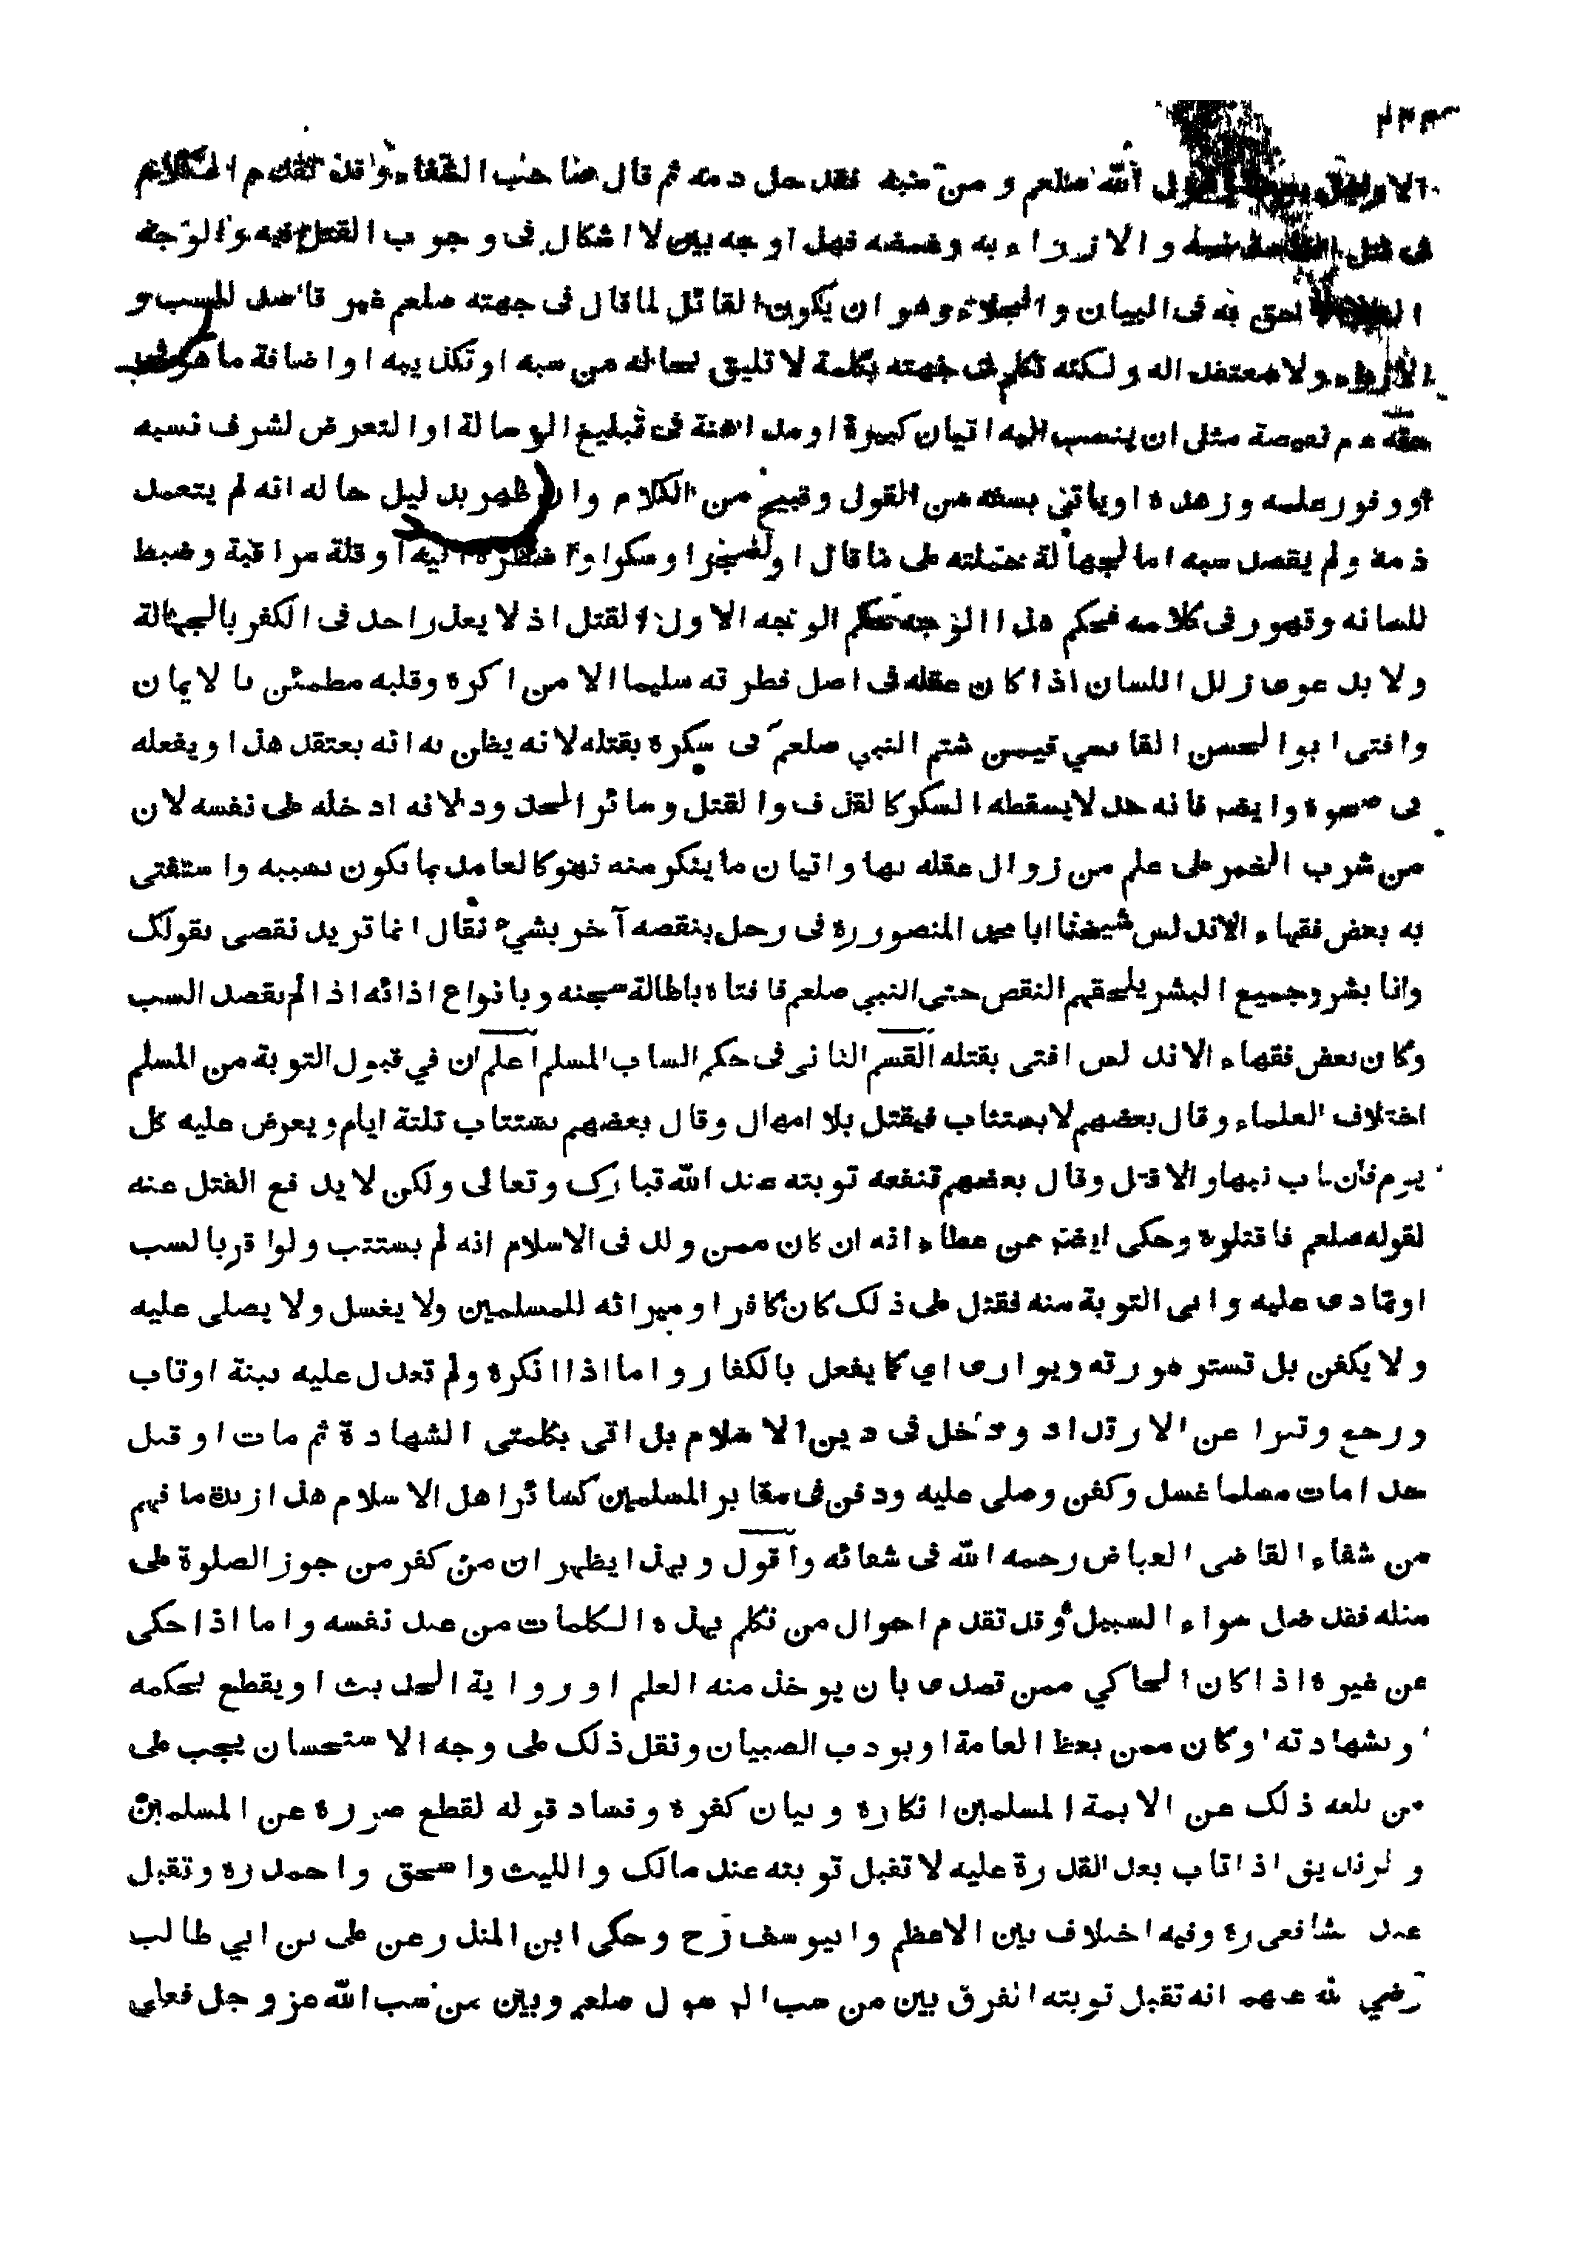 الله صلعم و من سبه فقد حل دمه ثم قال صاحب الشفاء و قد تقدم الكلام
فى قتل القاصد لسبه و الازراء به و غمصه فهذا وجه بين لا اشكال فى وجوب القتل فيه والوجه
لاحق به فى البيان و الجلاء وهو ان يكون القائل لما قال فى جهته صلعم غير قاصد للسب و
الازراء ولا معتقد اله ولكنه تكلم فى جهته بكلمة لا تليق بحاله من سبه او تكذيبه او اضافة ما
حقه عم نقيصة مثل ان ينسب اليه اتيان كبيرة او مداهنة فى تبليغ الرسالة او التعرض لشرف نسبه
او وفور علمه و زهده او ياتى بسفه من القول و قبيح من الكلام وان ظهر بدليل حاله انه لم يتعمد
ذمه ولم يقصد سبه اما لجهالة حملته على ما قال او لضجر او سكر او اضطره اليه او قلة مراقبة وضبط
للسانه و تهور فى كلامه فحكم هذا الوجه حكم الوجه الاول القتل اذ لا يعذر احد فى الكفر بالجهالة
ولا بدعوى زلل اللسان اذا كان عقله فى اصل فطرته سليما الا من اكره وقلبه مطمئن با لايمان
وافتى ابو الحسن القابسي فيمن شتم النبي صلعم فى سكره بقتله لانه يظن به انه يعتقد هذا و يفعله
فى صحوه وايضا فانه حد لا يسقطه السكر كا لقذف و القتل و سائر الحدود لانه ادخله على نفسه لان
من شرب الخمر على علم من زوال عقله بها و اتيان ما ينكر منه فهو كالعامد بما يكون بسببه و استفتى
به بعض فقهاء الاندلس شيخنا ابا محمد المنصور ره فى رجل ينقصه آخر بشيء فقال انما تريد نقصى بقولك
وانا بشر وجميع البشر يلحقهم النقص حتى النبي صلعم فافتاه باطالة سجنه و بانواع اذائه اذا لم يقصد السب
وكان بعض فقهاء الاندلس افتى بقتله القسم الثانى فى حكم الساب المسلم اعلم ان في قبول التوبة من المسلم
اختلاف العلماء و قال بعضهم لا يستتاب فيقتل بلا امهال و قال بعضهم يستتاب ثلثة ايام و يعرض عليه كل
يوم فان تاب فبها و الا قتل و قال بعضهم تنفعه توبته عند الله تبارك و تعالى ولكن لا يدفع القتل عنه
لقوله صلعم فاقتلوه و حكى ايضا عن عطاء انه ان كان ممن ولد فى الاسلام انه لم يستتب و لو اقر بالسب
او تمادى عليه و ابى التوبة منه فقتل على ذلك كان كافرا و ميراثه للمسلمين ولا يغسل ولا يصلى عليه
ولا يكفن بل تستر عورته ويوارى اي كما يفعل بالكفار و اما اذا انكره ولم تعدل عليه بينة او تاب
ورجع وتبرا عن الارتداد و دخل فى دين الاسلام بل اتى بكلمتى الشهادة ثم مات او قتل
حدا مات مسلما غسل وكفن وصلى عليه ودفن فى مقابر المسلمين كسائر اهل الاسلام هذا زبدة ما فهم
من شفاء القاضى العياض رحمه الله فى شفائه واقول و بهذا يظهر ان من كفر من جوز الصلوة على
مثله فقد ضل سواء السبيل وقد تقدم احوال من تكلم بهذه الكلمات من عند نفسه و اما اذا حكى
عن غيره اذا كان الحاكي ممن تصدى بان يوخذ منه العلم او رواية الحديث او يقطع بحكمه
و بشهادته او كان ممن يعظ العامة او يودب الصبيان و نقل ذلك على وجه الاستحسان يجب على
من بلغه ذلك عن الايمة المسلمين انكاره و بيان كفره و فساد قوله لقطع ضرره عن المسلمين
و الزنديق اذا تاب بعد القدرة عليه لا تقبل توبته عند مالك والليث واسحق واحمد ره وتقبل
عند شافعى ره وفيه اختلاف بين الاعظم وابيوسف رح وحكى ابن المنذر عن على بن ابي طالب
رضي الله عنهم انه تقبل توبته الفرق بين من سب الرسول صلعم وبين من سب الله عز و جل فعلى